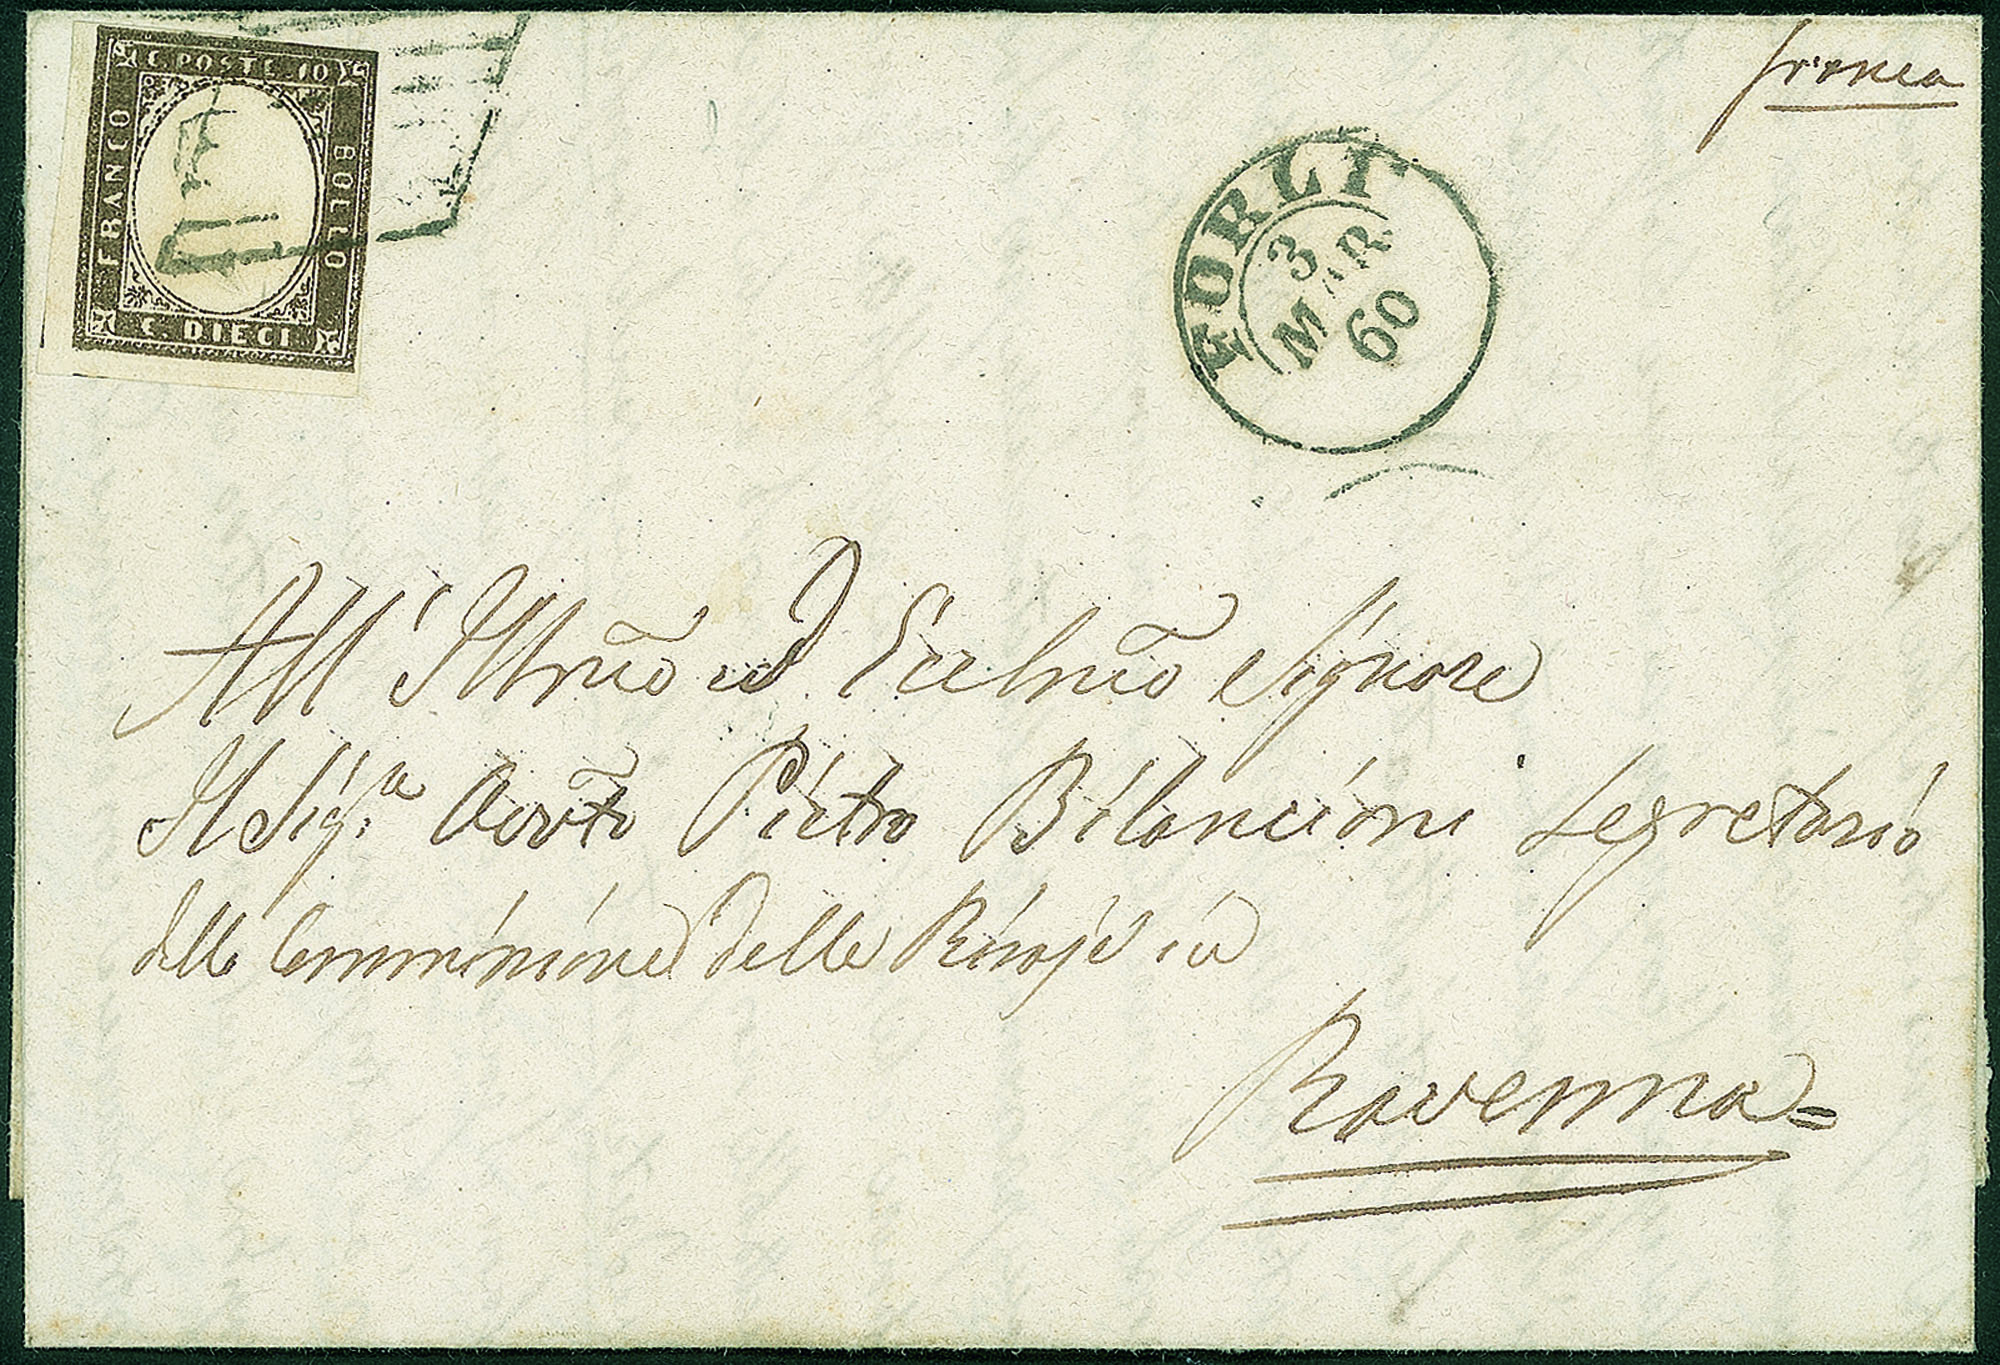 C. POSTE 10
FRANCO
BOLLO
C. DIECI
franca
FORLI
3
MAR
60
All' Illmo ed Eccلmo Signore
Il Sigr Avvto Pietro Bilancioni Segretario
della Commissione delle Risaje in
Ravenna=